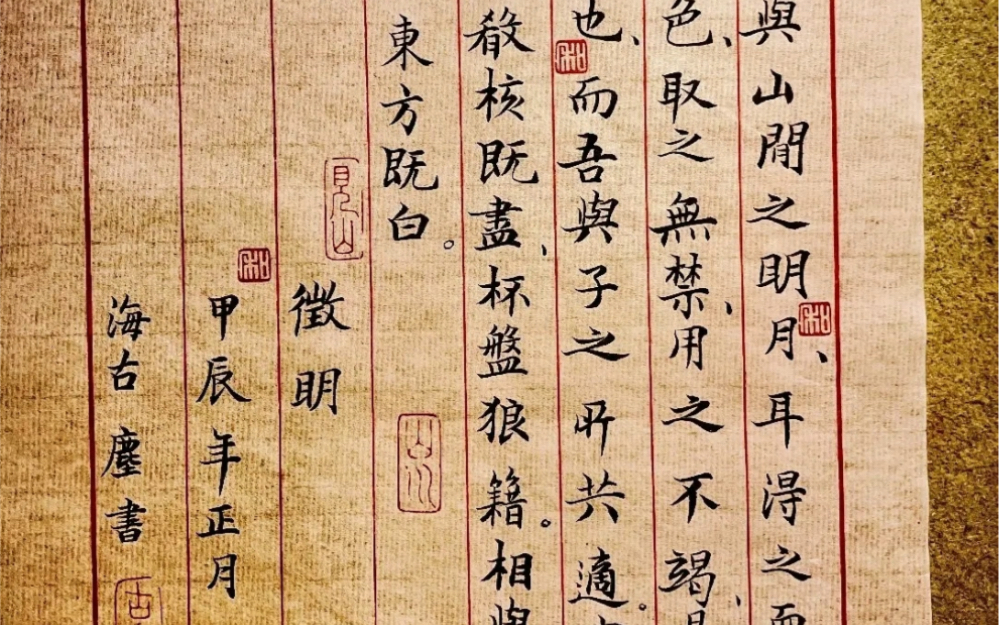 與山間之明月、耳得之而
色、取之無禁、用之不竭、是
也、而吾與子之所共適。
殽核既盡、杯盤狼籍。相與
東方既白。
徵明
甲辰年正月
海右塵書